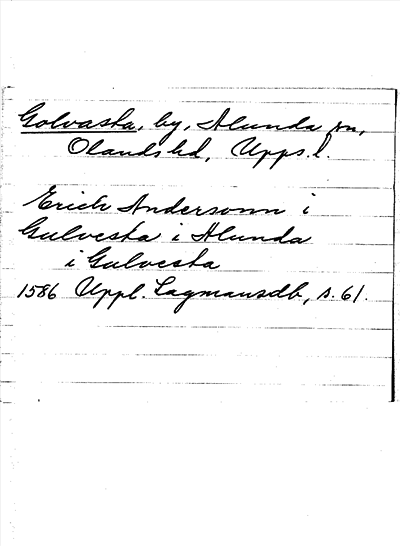 Golvasta, by, Alunda sn,
Olands hd, Upps. l.
Erich Andersonn i
Gulvesta i Alunda
i Gulvesta
1586 Uppl. Lagmansdb, s. 61.